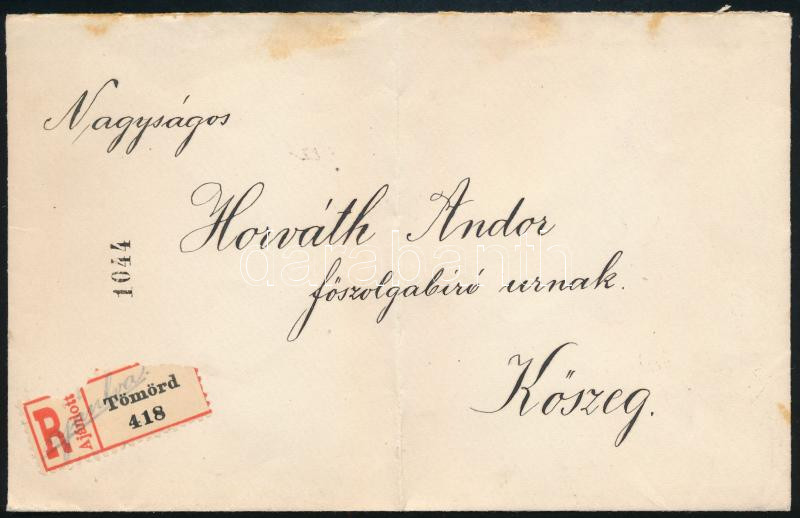 Nagyságos
Horváth Andor
főszolgabíró urnak.
Kőszeg.
1044
R
Ajánlott
Tömörd
418
darabanth